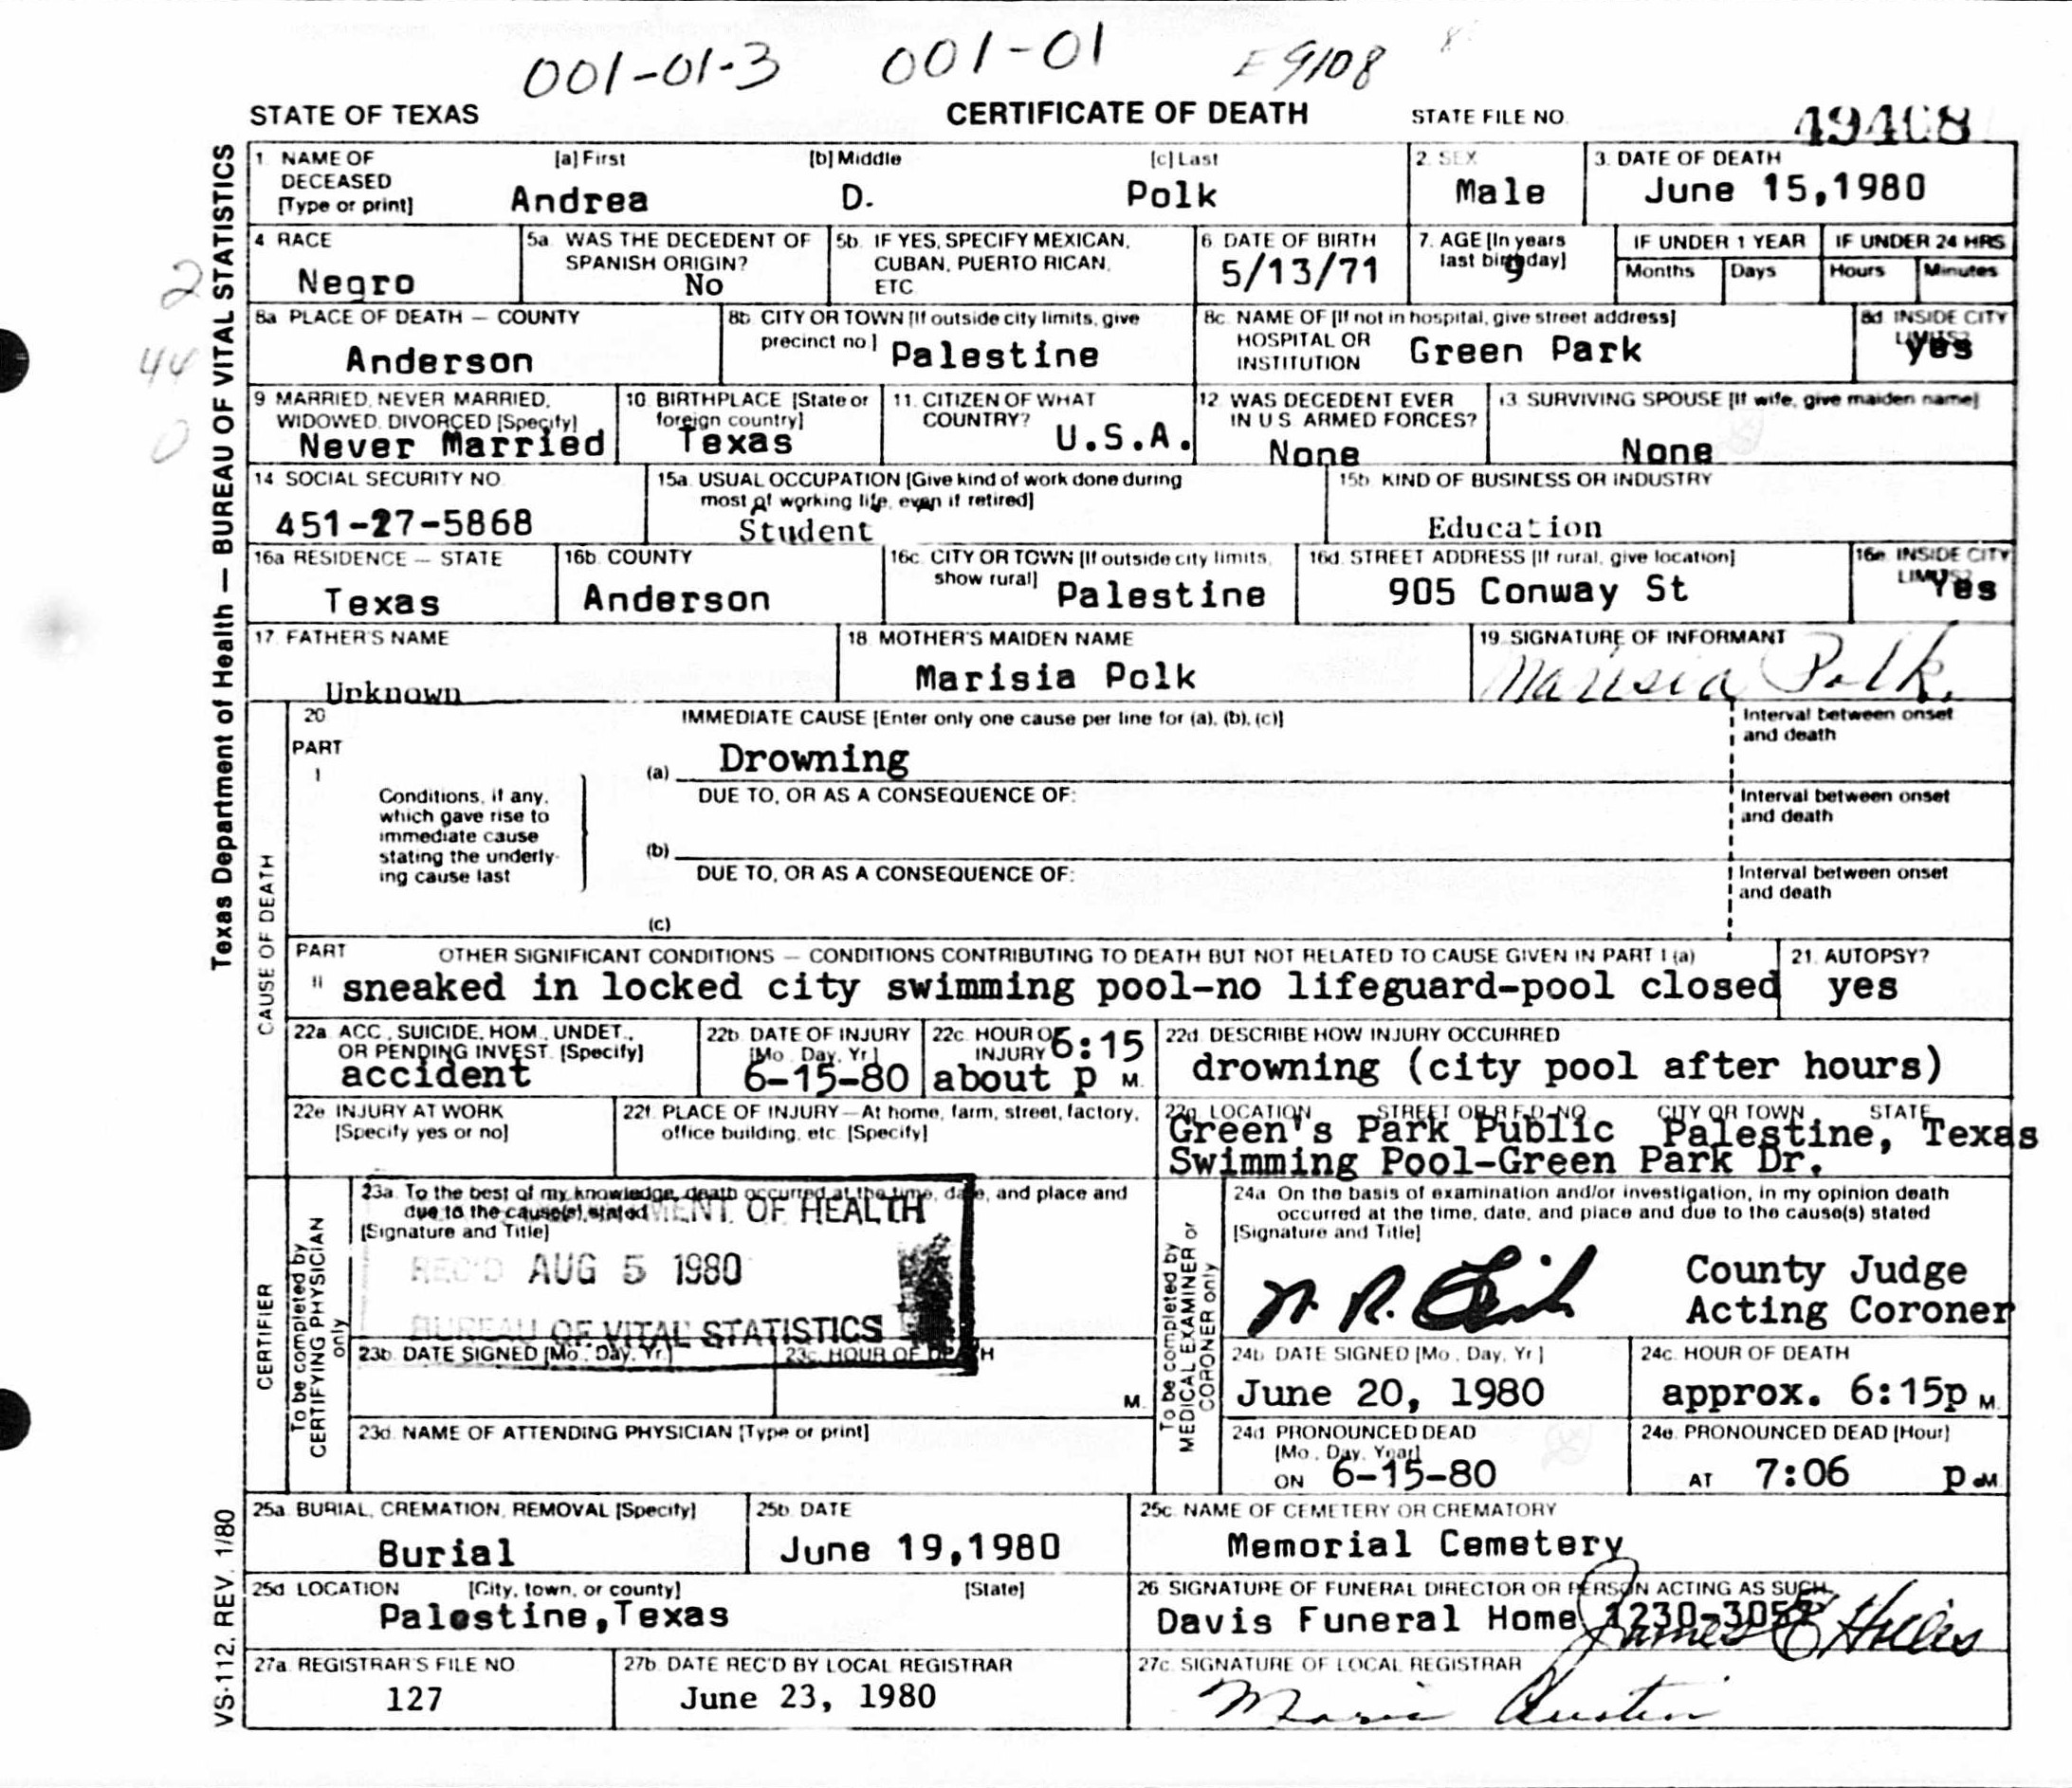 001-01-3 001-01 E9108
STATE OF TEXAS CERTIFICATE OF DEATH STATE FILE NO. 49408
Texas Department of Health — BUREAU OF VITAL STATISTICS
1. NAME OF DECEASED [Type or print] [a] First [b] Middle [c] Last
Andrea D. Polk
2. SEX
Male
3. DATE OF DEATH
June 15,1980
2
44
0
4. RACE
Negro
5a. WAS THE DECEDENT OF SPANISH ORIGIN?
No
5b. IF YES, SPECIFY MEXICAN, CUBAN, PUERTO RICAN, ETC.
6. DATE OF BIRTH
5/13/71
7. AGE [In years last birthday]
9
IF UNDER 1 YEAR
Months Days
IF UNDER 24 HRS
Hours Minutes
8a. PLACE OF DEATH — COUNTY
Anderson
8b. CITY OR TOWN [If outside city limits, give precinct no.]
Palestine
8c. NAME OF [If not in hospital, give street address] HOSPITAL OR INSTITUTION
Green Park
8d. INSIDE CITY LIMITS?
yes
9. MARRIED, NEVER MARRIED, WIDOWED, DIVORCED [Specify]
Never Married
10. BIRTHPLACE [State or foreign country]
Texas
11. CITIZEN OF WHAT COUNTRY?
U.S.A.
12. WAS DECEDENT EVER IN U S ARMED FORCES?
None
13. SURVIVING SPOUSE [If wife, give maiden name]
None
14. SOCIAL SECURITY NO.
451-27-5868
15a. USUAL OCCUPATION [Give kind of work done during most of working life, even if retired]
Student
15b. KIND OF BUSINESS OR INDUSTRY
Education
16a. RESIDENCE — STATE
Texas
16b. COUNTY
Anderson
16c. CITY OR TOWN [If outside city limits, show rural]
Palestine
16d. STREET ADDRESS [If rural, give location]
905 Conway St
16e. INSIDE CITY LIMITS?
Yes
17. FATHER'S NAME
Unknown
18. MOTHER'S MAIDEN NAME
Marisia Polk
19. SIGNATURE OF INFORMANT
Marisia Polk
CAUSE OF DEATH
20. PART I
IMMEDIATE CAUSE [Enter only one cause per line for (a), (b), (c)]
(a) Drowning
Interval between onset and death
Conditions, if any, which gave rise to immediate cause stating the underlying cause last
DUE TO, OR AS A CONSEQUENCE OF:
(b)
Interval between onset and death
DUE TO, OR AS A CONSEQUENCE OF:
(c)
Interval between onset and death
PART II OTHER SIGNIFICANT CONDITIONS — CONDITIONS CONTRIBUTING TO DEATH BUT NOT RELATED TO CAUSE GIVEN IN PART I (a)
sneaked in locked city swimming pool-no lifeguard-pool closed
21. AUTOPSY?
yes
22a. ACC., SUICIDE, HOM., UNDET., OR PENDING INVEST. [Specify]
accident
22b. DATE OF INJURY [Mo., Day, Yr.]
6-15-80
22c. HOUR OF INJURY
6:15
about p M.
22d. DESCRIBE HOW INJURY OCCURRED
drowning (city pool after hours)
22e. INJURY AT WORK [Specify yes or no]
22f. PLACE OF INJURY—At home, farm, street, factory, office building, etc. [Specify]
22g. LOCATION STREET OR R.F.D. NO. CITY OR TOWN STATE
Green's Park Public Palestine, Texas
Swimming Pool-Green Park Dr.
CERTIFIER
To be completed by CERTIFYING PHYSICIAN only
23a. To the best of my knowledge, death occurred at the time, date, and place and due to the cause(s) stated
[Signature and Title]
MENT OF HEALTH
REC'D AUG 5 1980
BUREAU OF VITAL STATISTICS
23b. DATE SIGNED [Mo., Day, Yr.]
23c. HOUR OF DEATH
M.
23d. NAME OF ATTENDING PHYSICIAN [Type or print]
To be completed by MEDICAL EXAMINER or CORONER only
24a. On the basis of examination and/or investigation, in my opinion death occurred at the time, date, and place and due to the cause(s) stated
[Signature and Title]
N. R.
County Judge
Acting Coroner
24b. DATE SIGNED [Mo., Day, Yr.]
June 20, 1980
24c. HOUR OF DEATH
approx. 6:15p M.
24d. PRONOUNCED DEAD [Mo., Day, Year]
ON 6-15-80
24e. PRONOUNCED DEAD [Hour]
AT 7:06 p.M
25a. BURIAL, CREMATION, REMOVAL [Specify]
Burial
25b. DATE
June 19,1980
25c. NAME OF CEMETERY OR CREMATORY
Memorial Cemetery
25d. LOCATION [City, town, or county] [State]
Palestine,Texas
26. SIGNATURE OF FUNERAL DIRECTOR OR PERSON ACTING AS SUCH
Davis Funeral Home 1230-3055
James E Hicks
27a. REGISTRAR'S FILE NO.
127
27b. DATE REC'D BY LOCAL REGISTRAR
June 23, 1980
27c. SIGNATURE OF LOCAL REGISTRAR
Marie Austin
VS-112, REV. 1/80